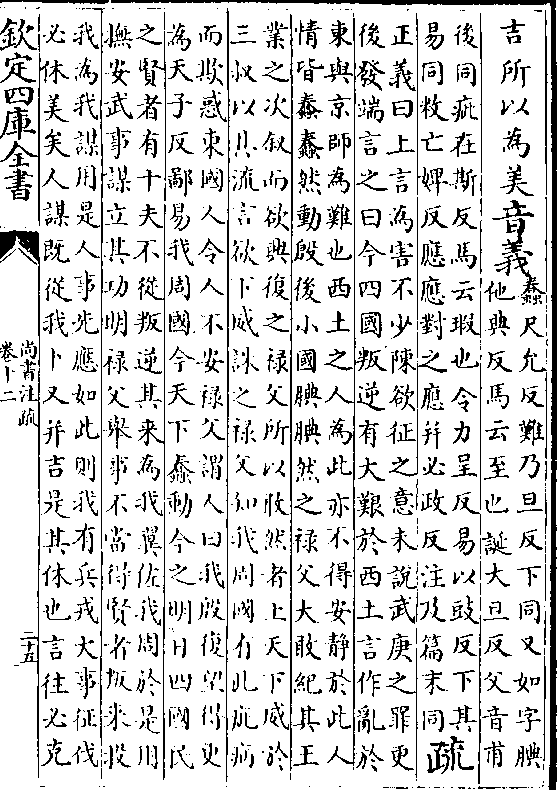 吉所以為美音義蠢尺允反難乃旦反下同又如字腆
他典反馬云至也誕大旦反父音甫
後同疵在斯反馬云瑕也令力呈反易以豉反下其
易同敉亡婢反應應對之應幷必政反注及篇末同疏
正義曰上言為害不少陳欲征之意未說武庚之罪更
後發端言之曰今四國叛逆有大艱於西土言作亂於
東與京師為難也西土之人為此亦不得安靜於此人
情皆蠢蠢然動殷後小國腆腆然之祿父大敢紀其王
業之次叙而欲興復之祿父所以敢然者上天下威於
三叔以其流言欲下威誅之祿父知我周國有此疵病
而欺惑東國人令人不安祿父謂人曰我殷復望得更
為天子反鄙易我周國今天下蠢動今之明日四國民
之賢者有十夫不從叛逆其来為我翼佐我周於是用
撫安武事謀立其功明祿父舉事不當得賢者叛来投
我為我謀用是人事先應如此則我有兵戎大事征伐
必休美矣人謀既從我卜又幷吉是其休也言往必克
欽定四庫全書
尚書注疏
卷十二
二十五